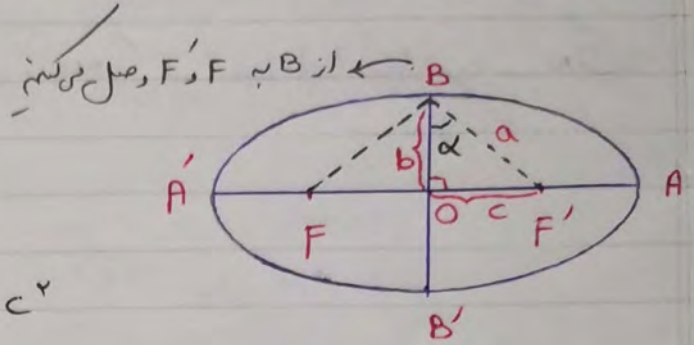 از B به F و F′ وصل می‌کنیم
B
b α a
A′ O c A
F F′
c²
B′